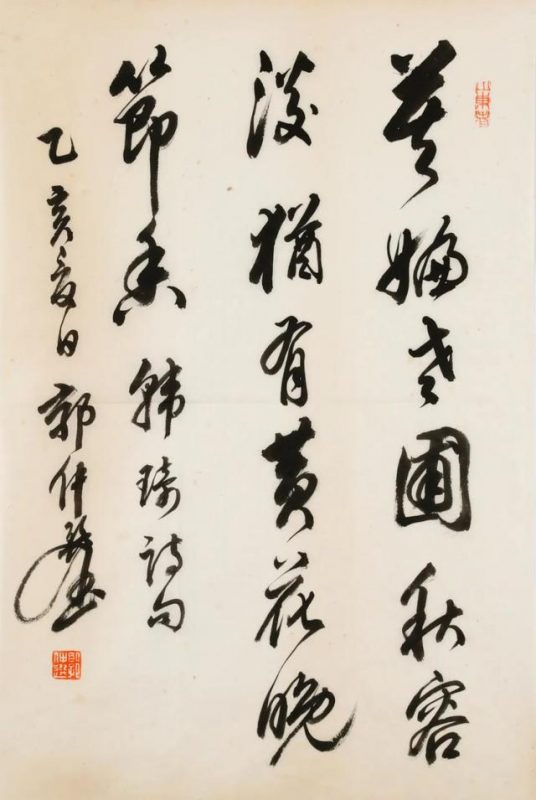 莫嫌老圃秋容
淡猶有黃花晚
節香 韓琦詩句
乙亥夏日 郭仲選